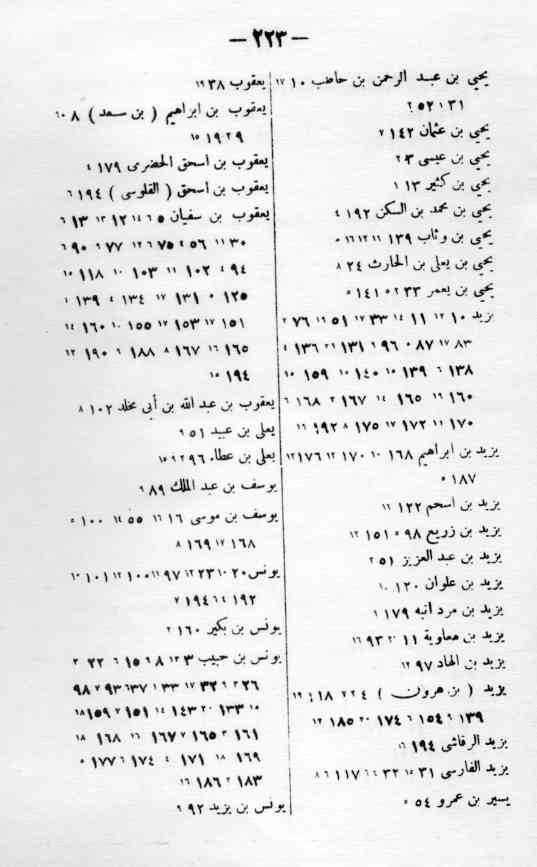 — ٢٢٣ —
يحيي بن عبد الرحمن بن حاطب ١٠ ١٧
٣١ ١ ٥٢ ٢
يحيي بن عثمان ١٤٢ ٧
يحيي بن عيسى ٣ ٢
يحيي بن كثير ١٣ ١
يحيي بن محمد بن السكن ١٩٢ ٤
يحيي بن وثاب ١٣٩ ١١ ١٢ ١٦
يحيي بن يعلى بن الحارث ٢٤ ٨
يحيي بن يعمر ٣٣ ٢ ٥ ١٤١ ٥
يزيد ١٠ ١٢ ١١ ١٤ ٣٣ ١٧ ٥١ ١٦ ٧٦ ٢
٨٣ ١٧ ٨٧ ١ ٩٦ ٩ ١٣١ ٢١ ١٣٦ ٤
١٣٨ ٦ ١٣٩ ١٥ ١٤٠ ١٥ ١٥٩ ١٥
١٦٠ ١٩ ١٦٥ ١٤ ١٦٧ ٢ ١٦٨ ٦
١٧٠ ١١ ١٧٢ ١٧ ١٧٥ ٨ ١٩٢ ١٦
يزيد بن ابراهيم ١٦٨ ١٠ ١٧٠ ١٢ ١٧٦ ١٢
١٨٧ ٥
يزيد بن اسحم ١٢٢ ١٦
يزيد بن زريع ٩٨ ٥ ١٥١ ١٢
يزيد بن عبد العزيز ٥١ ٢
يزيد بن علوان ١٢٠ ١٠
يزيد بن مردانبه ١٧٩ ١
يزيد بن معاوية ١١ ٢٠ ٩٣ ١٦
يزيد بن الهاد ٩٧ ١٢
يزيد ( بن هرون ) ٤ ٢ ٢ ١٨ ١٩
١٣٩ ٩ ١٥٤ ٦ ١٧٤ ٢٠ ١٨٥ ١٢
يزيد الرقاشى ١٩٤ ١٦
يزيد الفارسى ٣١ ١٥ ٣٢ ٤ ٦ ١١٧ ٦ ٨
يسير بن عمرو ٥٤ ٥
يعقوب ٣٨ ١٩
يعقوب بن ابراهيم ( بن سعد ) ٨ ٦٠
٢٩ ٩ ١٩ ١٥
يعقوب بن اسحق الحضرى ١٧٩ ٤
يعقوب بن اسحق ( القلوسى ) ١٩٤ ٦
يعقوب بن سفيان ٥ ٦ ١٤ ١٢ ١٢ ١٣ ٦
٣٠ ١١ ٥٦ ٤ ٧٥ ٦ ١٢ ٧٧ ٩ ٩٠ ٦
٩٤ ٤ ١٠٢ ١١ ١٠٣ ١٠ ١١٨ ١٥
١٢٥ ٥ ١٣١ ١٧ ١٣٤ ٤ ١٣٩ ١
١٥١ ١٧ ١٥٣ ١٧ ١٥٥ ١٠ ١٦٠ ١٤
١٦٥ ١٦ ١٦٧ ٨ ١٨٨ ٩ ١٩٠ ١٢
١٩٤ ١٥
يعقوب بن عبد الله بن أبى مخلد ١٠٢ ٨
يعلى بن عبيد ٥١ ٩
يعلى بن عطاء ٩٦ ٢ ٩ ١٥
يوسف بن عبد الملك ٨٩ ٩
يوسف بن موسى ١٦ ١٦ ٥٥ ١٤ ١٠٠ ٥
١٦٨ ١٧ ١٦٩ ٨
يونس ٢٠ ١٠ ٢٣ ١٢ ٩٧ ١١ ١٠٠ ١٢ ١٠١ ١٠
١٩٢ ٤ ٦ ١٩٤ ٧
يونس بن بكير ١٦٠ ٢
يونس بن حبيب ٣ ١٢ ٨ ٩ ١٥ ٦ ٢٢ ٣
٢٦ ٢ ٩ ٣٢ ١٧ ٣٣ ١ ٣٧ ٦ ٩٣ ٧ ٩٨
١٥ ١٣٣ ٢٠ ١٤٣ ١٤ ١٥١ ٧ ١٥٩ ١٨
١٦١ ٣ ١٦٥ ٧ ١٦٧ ١٦ ١٦٨ ١٨
١٦٩ ١٨ ١٧١ ٤ ١٧٤ ٦ ١٧٧ ٥
١٨٣ ٢ ١٨٦ ١٦
يونس بن يزيد ٩٢ ٩